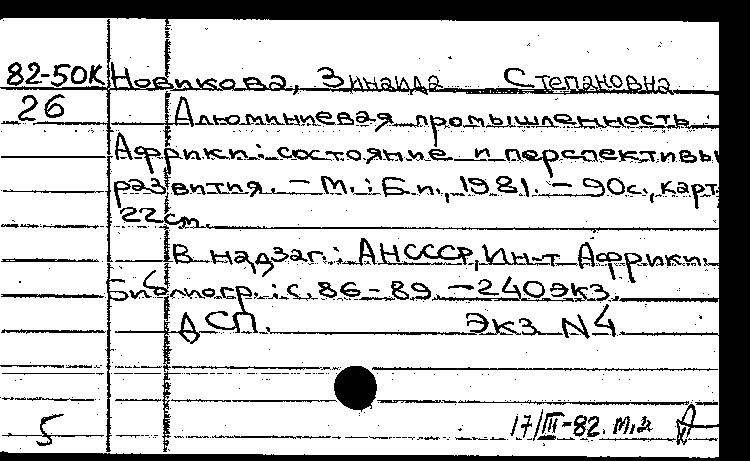 82-50К Новикова, Зинаида Степановна
26 Алюминиевая промышленность
Африки: состояние и перспективы
развития. - М.: Б.и., 1981. - 90с., карт.
22см.
В надзаг.: АНСССР, Ин-т Африки.
Библиогр.: с. 86-89. - 240экз.
ДСП. Экз N4
5 17/III-82.